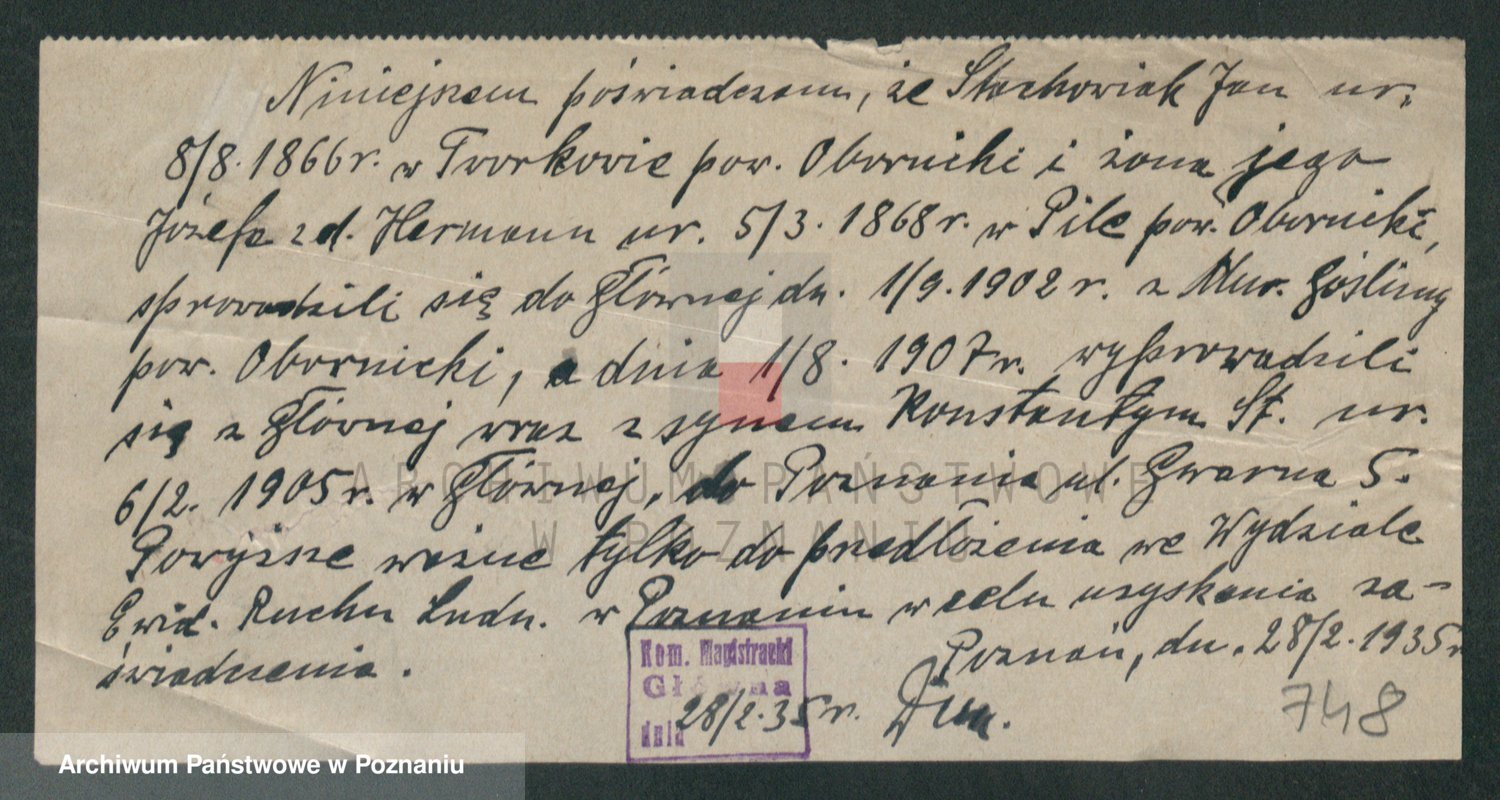 Niniejszem poświadczam, że Stachowiak Jan ur.
8/8. 1866 r. w Tworkowie pow. Obornicki i żona jego
Józefa z d. Hermann ur. 5/3. 1868 r. w Pile pow. Obornicki,
sprowadzili się do Głównej dn. 1/9. 1902 r. z Mur. Gośliny
pow. Obornicki, a dnia 1/8. 1907 r. wyprowadzili
się z Głównej wraz z synem Konstantym St. ur.
6/2. 1905 r. w Głównej, do Poznania ul. Gwarna 5.
Powyższe ważne tylko do przedłożenia we Wydziale
Ewid. Ruchu Ludn. w Poznaniu w celu uzyskania za-
świadczenia.
Poznań, dn. 28/2. 1935 r
Kom. Magistracki
Główna
dnia 28/2. 35 r.
748
ARCHIWUM PAŃSTWOWE
W POZNANIU
Archiwum Państwowe w Poznaniu